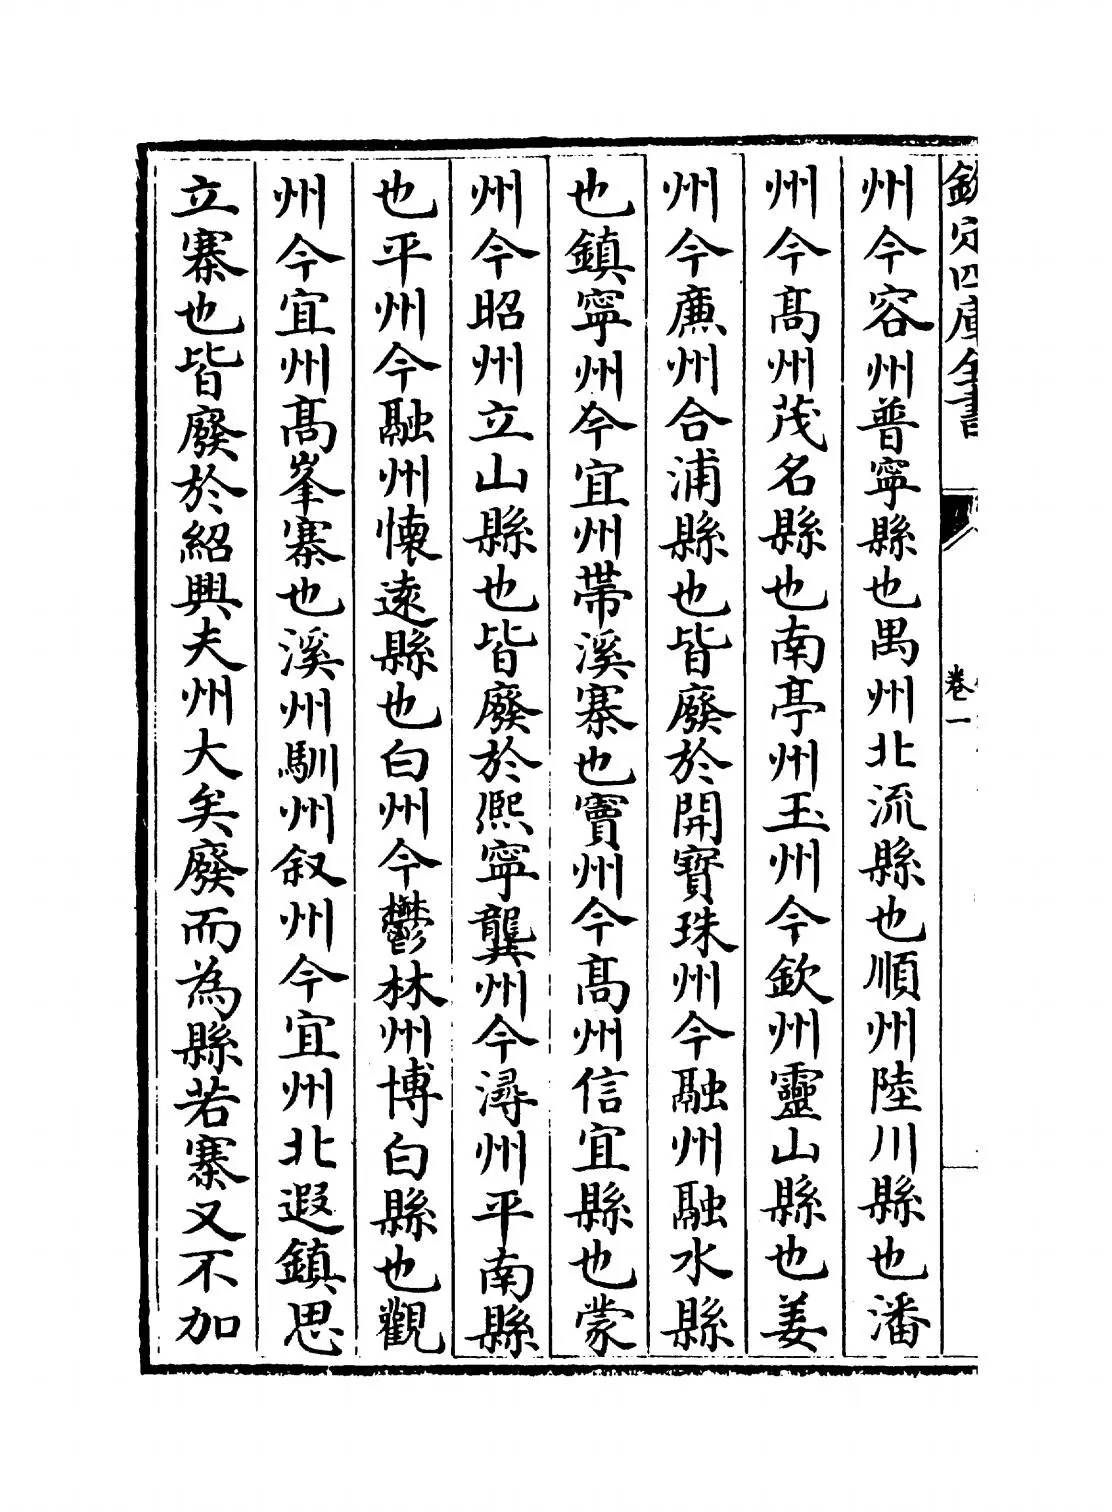 欽定四庫全書
卷一
州今容州普寧縣也禺州北流縣也順州陸川縣也潘
州今髙州茂名縣也南亭州玉州今欽州靈山縣也姜
州今亷州合浦縣也皆廢於開寶珠州今融州融水縣
也鎮寜州今宜州帯溪寨也竇州今髙州信宜縣也蒙
州今昭州立山縣也皆廢於熈寜龔州今潯州平南縣
也平州今融州懐逺縣也白州今鬱林州博白縣也觀
州今宜州髙峯寨也溪州馴州叙州今宜州北遐鎮思
立寨也皆廢於紹興夫州大矣廢而為縣若寨又不加